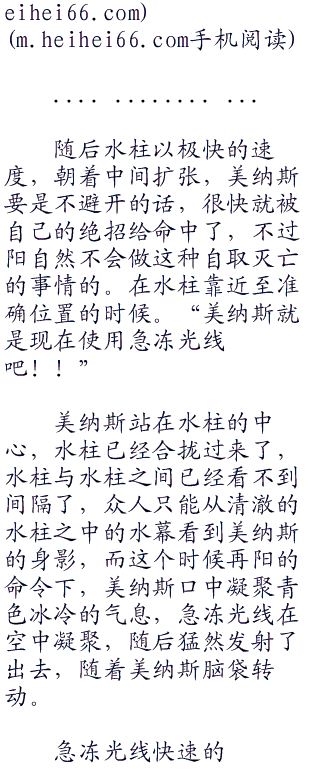 eihei66.com)
(m.heihei66.com手机阅读)
.... ........ ...
随后水柱以极快的速
度，朝着中间扩张，美纳斯
要是不避开的话，很快就被
自己的绝招给命中了，不过
阳自然不会做这种自取灭亡
的事情的。在水柱靠近至准
确位置的时候。“美纳斯就
是现在使用急冻光线
吧！！”
美纳斯站在水柱的中
心，水柱已经合拢过来了，
水柱与水柱之间已经看不到
间隔了，众人只能从清澈的
水柱之中的水幕看到美纳斯
的身影，而这个时候再阳的
命令下，美纳斯口中凝聚青
色冰冷的气息，急冻光线在
空中凝聚，随后猛然发射了
出去，随着美纳斯脑袋转
动。
急冻光线快速的